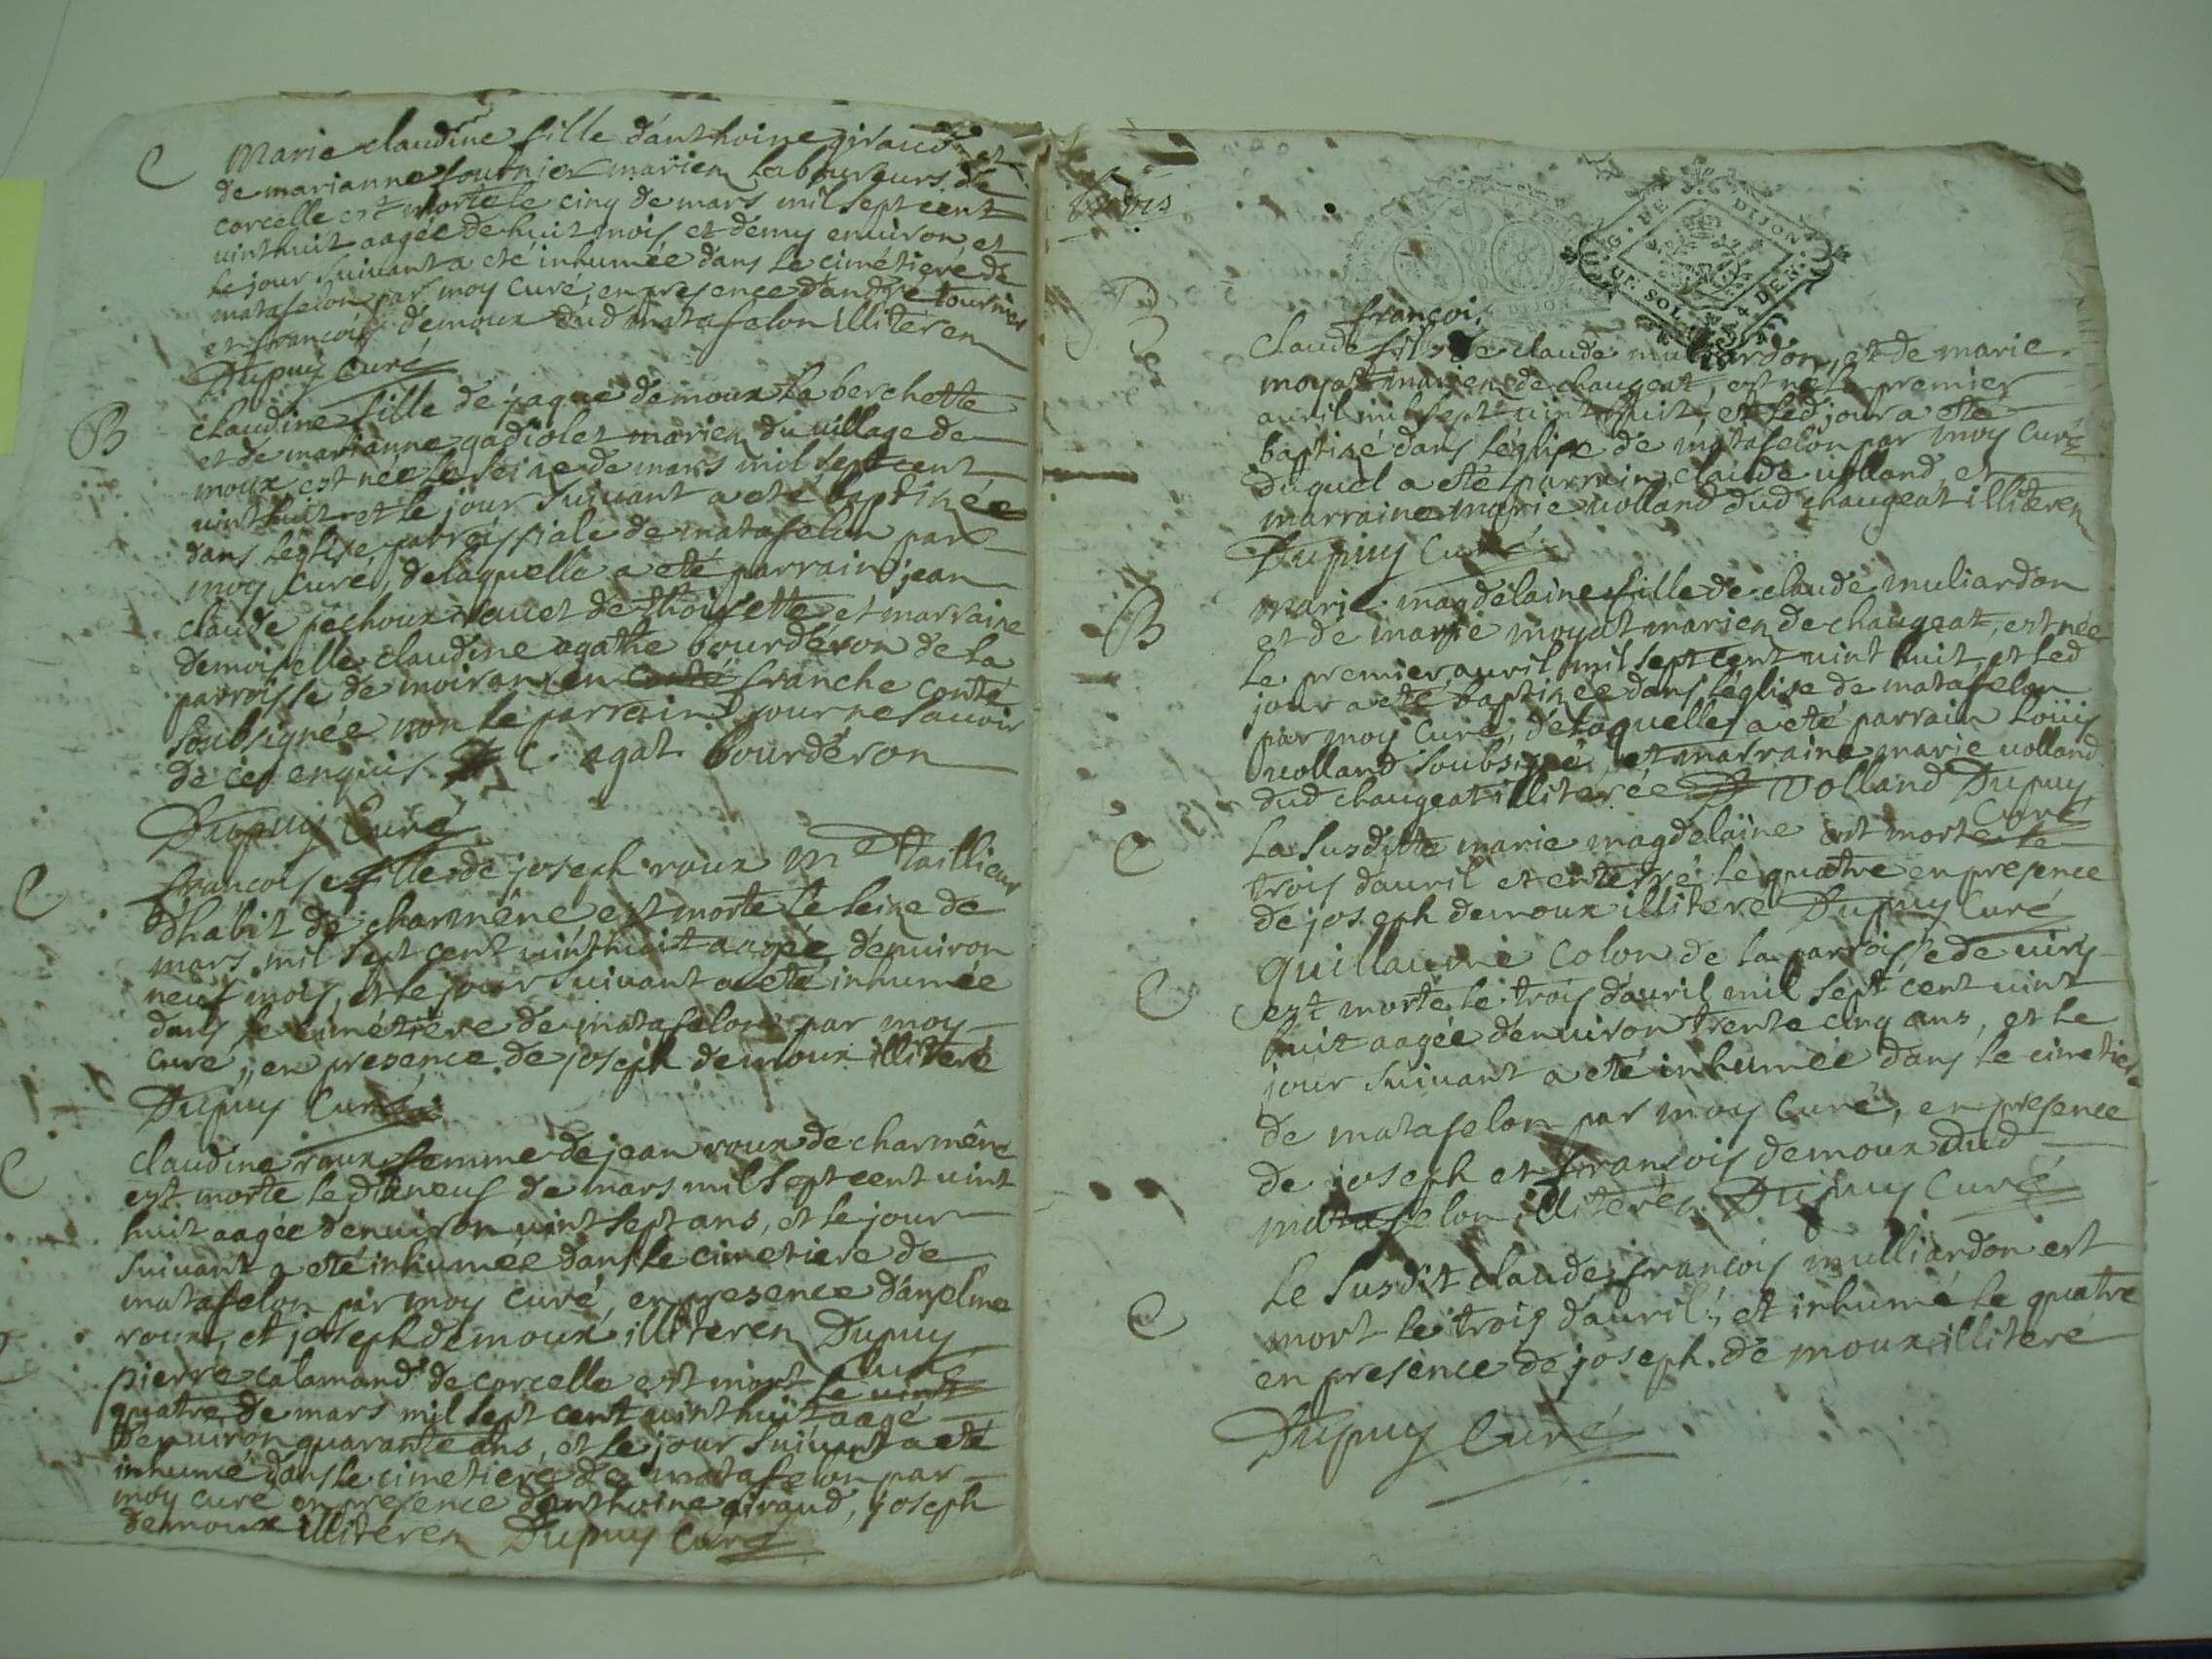 C
Marie claudine fille d'anthoine giraud et
de marianne fournier mariez laboureurs de
corcelle est morte le cinq de mars mil sept cent
vint huit aagée de huit mois et demy environ, et
le jour suivant a eté inhumée dans le cimétiere de
matafelon par moy Curé, en presence d'andre tournier
et françois demoux dud matafelon illiterez
Dupuy Curé
B
claudine fille de jaque demoux la berchette
et de marianne gadiolet mariez du village de
moux est née le seize de mars mil sept cent
vint huit et le jour suivant a eté baptizée
dans l'églize parroissiale de matafelon par
moy Curé, de laquelle a eté parrain jean
claude pechoux de thoirette et marraine
demoiselle claudine agathe bourderon de la
parroisse de moiran en conté franche conté
soubsignée non le parrain pour ne savoir
de ce enquis C. agat. bourderon
Dupuy Curé
C
françoise fille de joseph roux me taillieur
d'habit de charmêne est morte le seize de
mars mil sept cent vint huit aagée d'environ
neuf mois, et le jour suivant a eté inhumée
dans le cimétiere de matafelon par moy
Curé, en presence de joseph demoux illiteré
Dupuy Curé
C
claudine roux femme de jean roux de charmêne
est morte le dixneuf de mars mil sept cent vint
huit aagée d'environ vint sept ans, et le jour
suivant a eté inhumée dans le cimetiere de
matafelon par moy curé, en presence d'anselme
roux, et joseph demoux illiterez Dupuy
Curé
pierre calamand de corcelle est mort le vint
quatre de mars mil sept cent vint huit aagé
d'environ quarante ans, et le jour suivant a eté
inhumé dans le cimetiere de matafelon par
moy curé en presence d'anthoine giraud, joseph
demoux illiterez Dupuy Curé
G. DE DIJON
QUATR. SOLS DEN.
B
françois
Claude fils de claude muliardon, et de marie
moyat mariez de chaugeat, est né le premier
avril mil sept vint huit, et led jour a eté
baptizé dans l'églize de matafelon par moy Curé
duquel a eté parrain claude volland, et
marraine marie volland dud chaugeat illiterez
Dupuy Curé
B
Marie magdelaine fille de claude muliardon
et de marie moyat mariez de chaugeat, est née
le premier avril mil sept cent vint huit, et led
jour a eté baptizée dans l'églize de matafelon
par moy Curé, de laquelle a eté parrain Loüis
volland soubsigné et marraine marie volland
dud chaugeat illiterée Volland Dupuy
Curé
C
La susditte marie magdelaine est morte le
trois d'avril et enterré le quatre en presence
de joseph demoux illiteré Dupuy Curé
C
Guillaume Colon de la parroisse de viry
est morte le trois d'avril mil sept cent vint
huit aagée d'environ trente cinq ans, et le
jour suivant a eté inhumée dans le cimetiere
de matafelon par moy Curé, en presence
de joseph et françois demoux dud
matafelon illiterez Dupuy Curé
C
Le susdit claude françois mulliardon est
mort le trois d'avril, et inhumé le quatre
en presence de joseph de moux illiteré
Dupuy Curé